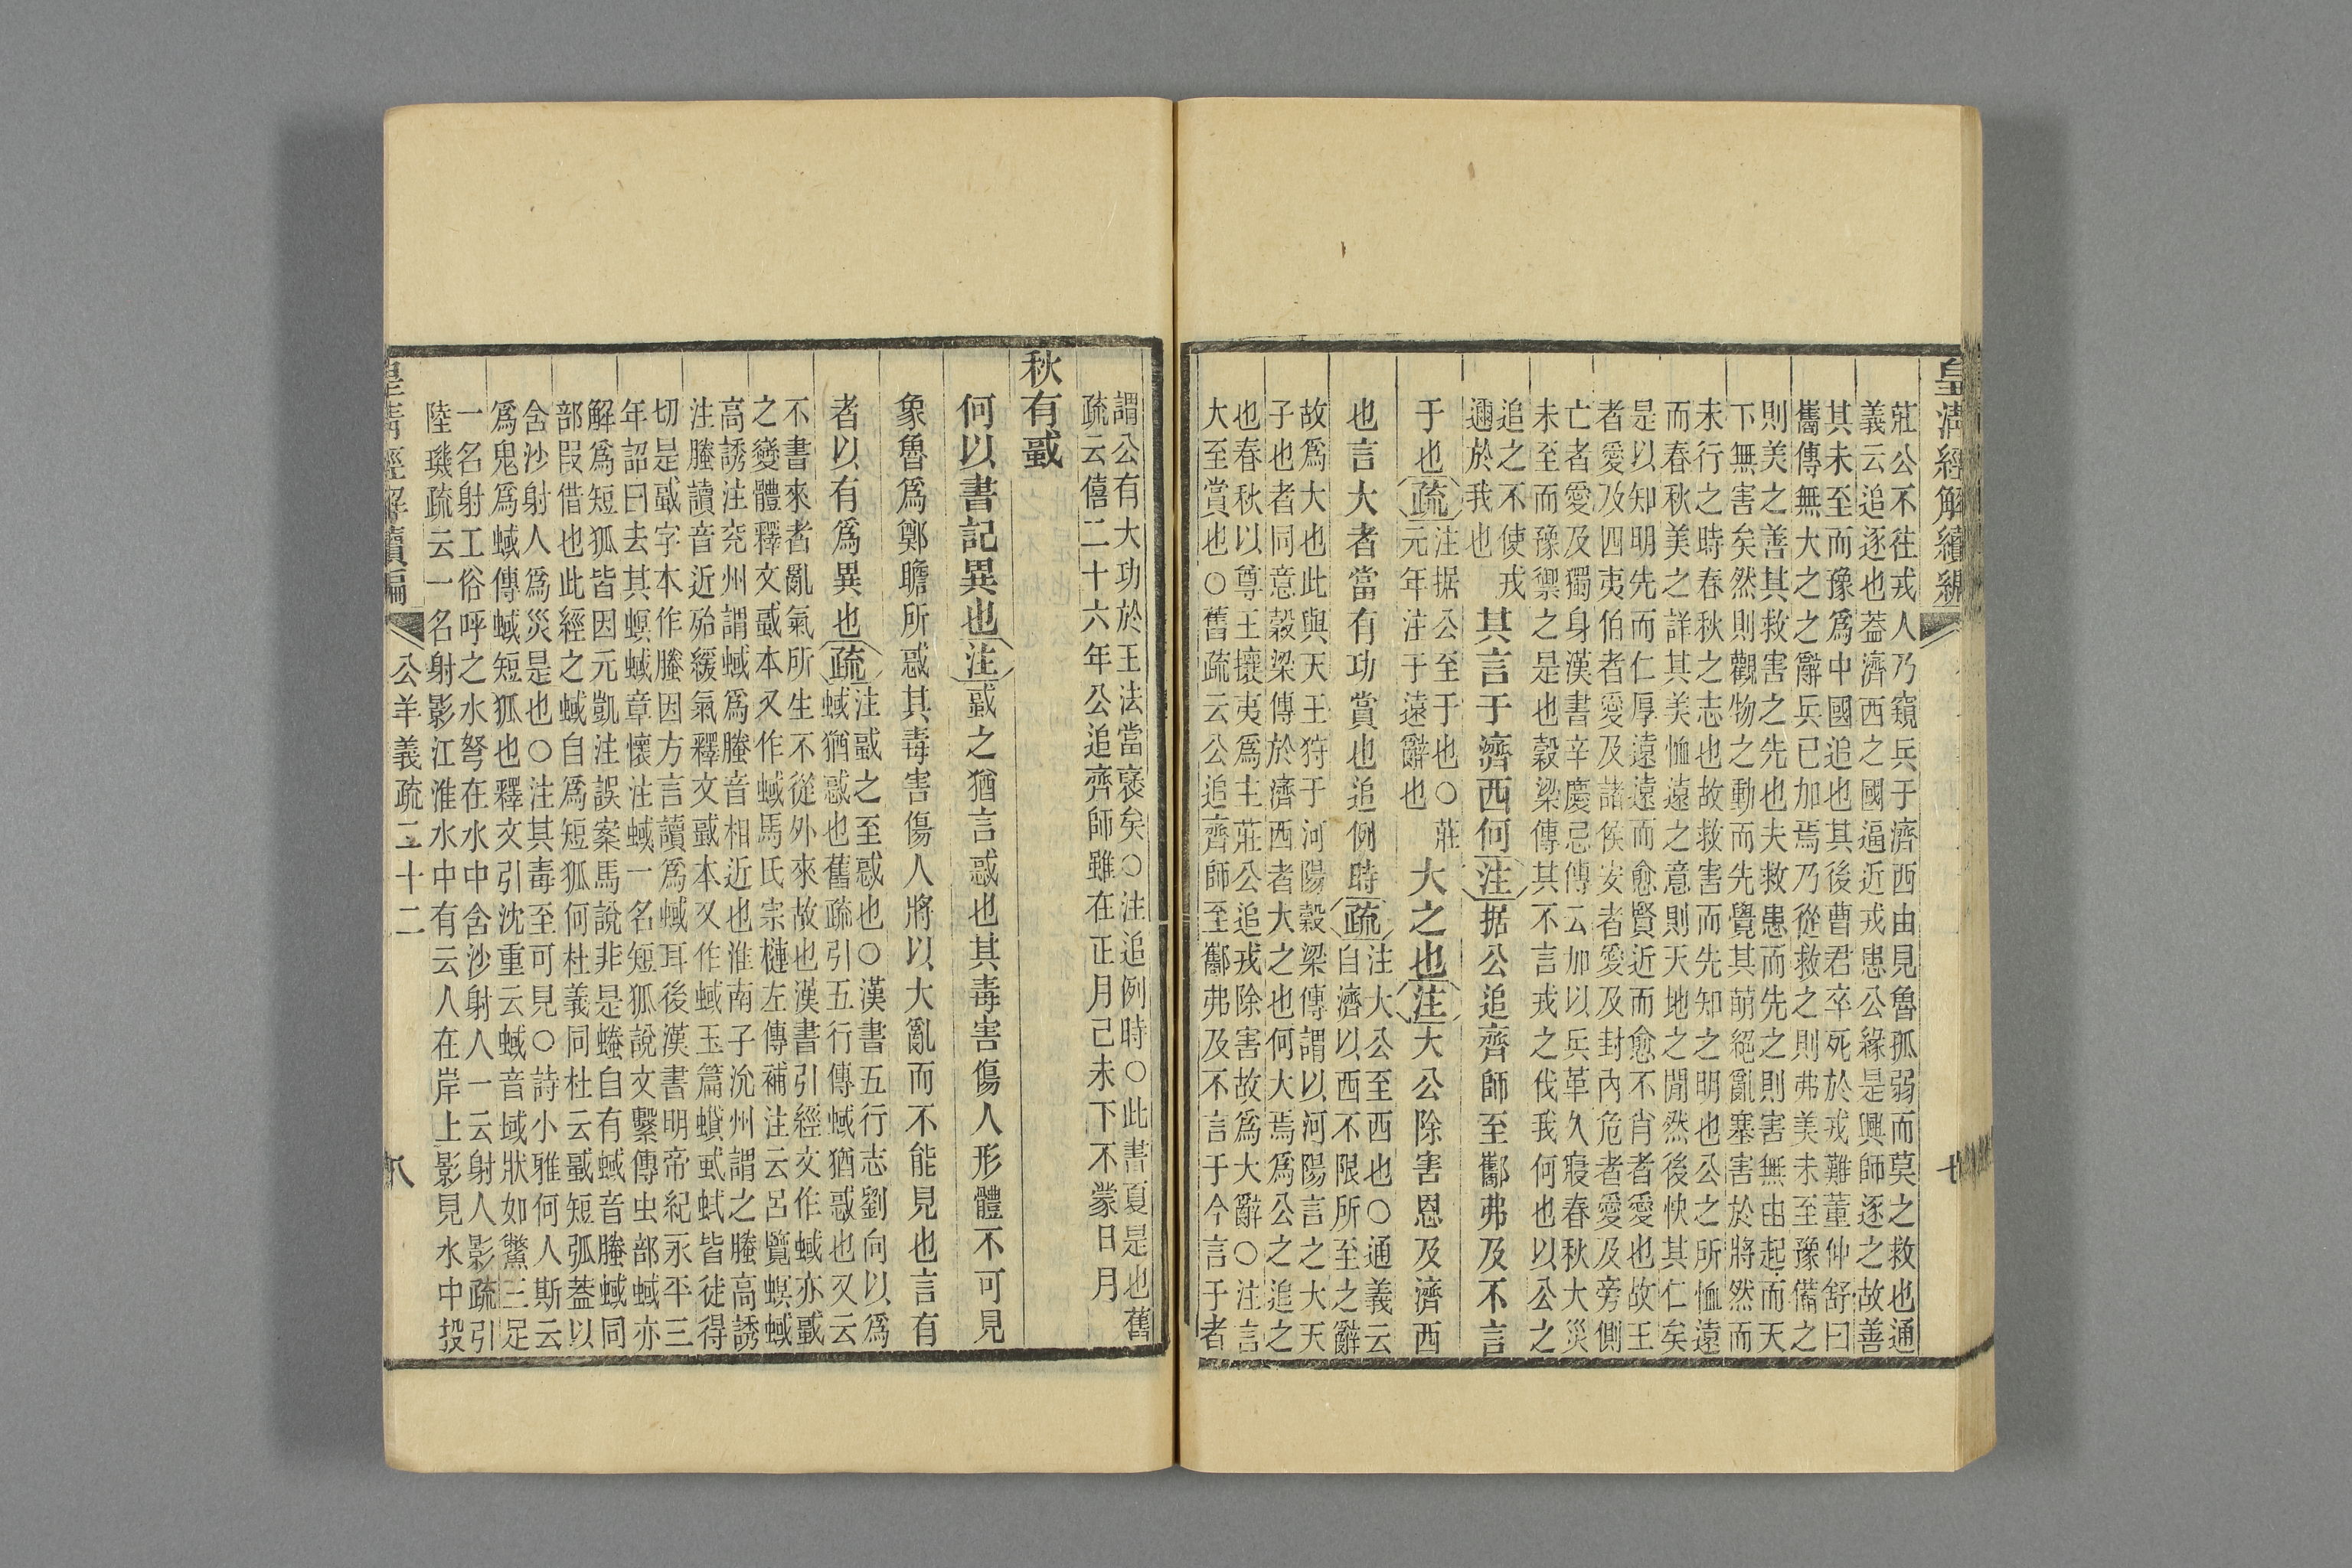 皇清經解續編
七
莊公不往戎人乃窺兵于濟西由見魯孤弱而莫之救也通
義云追逐也葢濟西之國逼近戎患公緣是興師逐之故善
其未至而豫爲中國追也其後曹君卒死於戎難董仲舒曰
雟傳無大之之辭兵已加焉乃從救之則弗美未至豫備之
則美之善其救害之先也夫救患而先之則害無由起而天
下無害矣然則觀物之動而先覺其萌絕亂塞害於將然而
未行之時春秋之志也故救害而先知之明也公之所恤遠
而春秋美之詳其美恤遠之意則天地之閒然後快其仁矣
是以知明先而仁厚遠遠而愈賢近而愈不肖者愛也故王
者愛及四夷伯者愛及諸侯安者愛及封內危者愛及旁側
亡者愛及獨身漢書辛慶忌傳云加以兵革久寢春秋大災
未至而豫禦之是也穀梁傳其不言戎之伐我何也以公之
追之不使戎
邇於我也
其言于濟西何注据公追齊師至酅弗及不言
于也疏注据公至于也○莊
元年注于遠辭也
大之也注大公除害恩及濟西
也言大者當有功賞也追例時疏注大公至西也○通義云
自濟以西不限所至之辭
故爲大也此與天王狩于河陽穀梁傳謂以河陽言之大天
子也者同意穀梁傳於濟西者大之也何大焉爲公之追之
也春秋以尊王攘夷爲主莊公追戎除害故爲大辭○注言
大至賞也○舊疏云公追齊師至酅弗及不言于今言于者
謂公有大功於王法當褒矣○注追例時○此書夏是也舊
疏云僖二十六年公追齊師雖在正月己未下不蒙日月
秋有蜮
何以書記異也注蜮之猶言惑也其毒害傷人形體不可見
象魯爲鄭瞻所惑其毒害傷人將以大亂而不能見也言有
者以有爲異也疏注蜮之至惑也○漢書五行志劉向以爲
蜮猶惑也舊疏引五行傳蜮猶惑也又云
不書來者亂氣所生不從外來故也漢書引經文作蜮亦蜮
之變體釋文蜮本又作蜮馬氏宗槤左傳補注云呂覽螟蜮
高誘注兖州謂蜮爲螣音相近也淮南子沇州謂之螣高誘
注螣讀音近殆緩氣釋文蜮本又作蜮玉篇蟘虱蚮皆徒得
切是蜮字本作螣因方言讀爲蜮耳後漢書明帝紀永平三
年詔曰去其螟蜮章懷注蜮一名短狐說文繫傳虫部蜮亦
解爲短狐皆因元凱注誤案馬說非是蜷自有蜮音螣蜮同
部叚借也此經之蜮自爲短狐何杜義同杜云蜮短弧葢以
含沙射人爲災是也○注其毒至可見○詩小雅何人斯云
爲鬼爲蜮傳蜮短狐也釋文引沈重云蜮音域狀如鱉三足
一名射工俗呼之水弩在水中含沙射人一云射人影疏引
陸璣疏云一名射影江淮水中有云人在岸上影見水中投
皇清經解續編
公羊義疏二十二
八